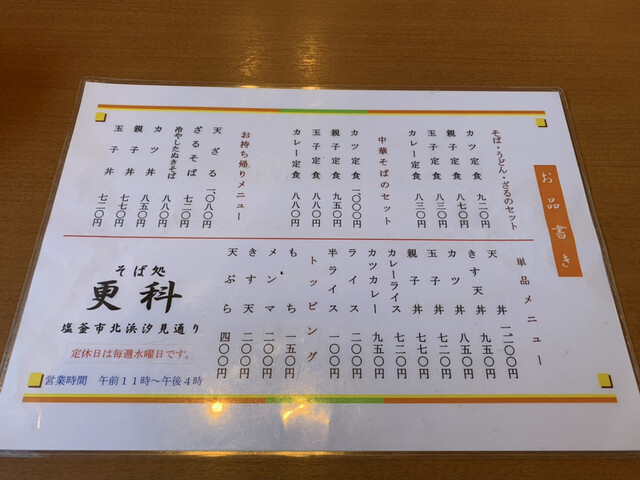 お品書き
そば・うどん・ざるのセット
カツ定食 九二〇円
親子定食 八七〇円
玉子定食 八三〇円
カレー定食 八三〇円
中華そばのセット
カツ定食 一〇〇〇円
親子定食 九五〇円
玉子定食 八八〇円
カレー定食 八八〇円
お持ち帰りメニュー
天ざる 一、〇八〇円
ざるそば 七二〇円
冷やしたぬきそば 八八〇円
カツ丼 八五〇円
親子丼 七七〇円
玉子丼 七二〇円
単品メニュー
天丼 一二〇〇円
きす天丼 九五〇円
カツ丼 八五〇円
親子丼 七七〇円
玉子丼 七二〇円
カレーライス 七二〇円
カツカレー 九五〇円
ライス 二〇〇円
半ライス 一〇〇円
トッピング
もち 一五〇円
メンマ 二〇〇円
きす天 二〇〇円
天ぷら 四〇〇円
そば処
更科
塩釜市北浜汐見通り
定休日は毎週水曜日です。
営業時間 午前11時~午後4時